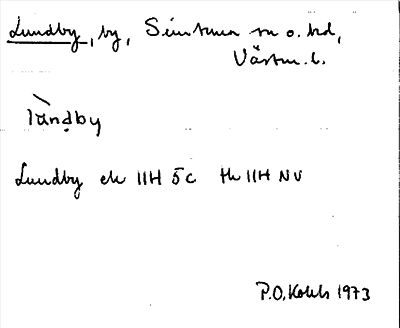 Lundby, by, Simtuna sn o. hd,
Västm. l.
làndby
Lundby ek 11H 5c tk 11H NV
P.O. 1973